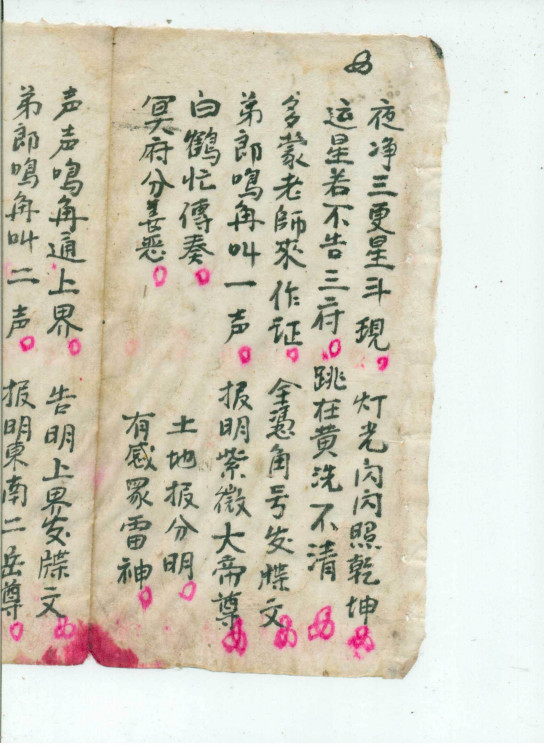 夜净三更星斗現 灯光闪闪照乾坤
运星若不告三府 跳在黄洗不清
多蒙老師來作证 全憑角号发牒文
弟郎鳴角叫一声 报明紫微大帝尊
白鶴忙傳奏 土地报分明
冥府分善恶 有感眾雷神
声声鳴角通上界 告明上界发牒文
弟郎鳴角叫二声 报明東南二岳尊